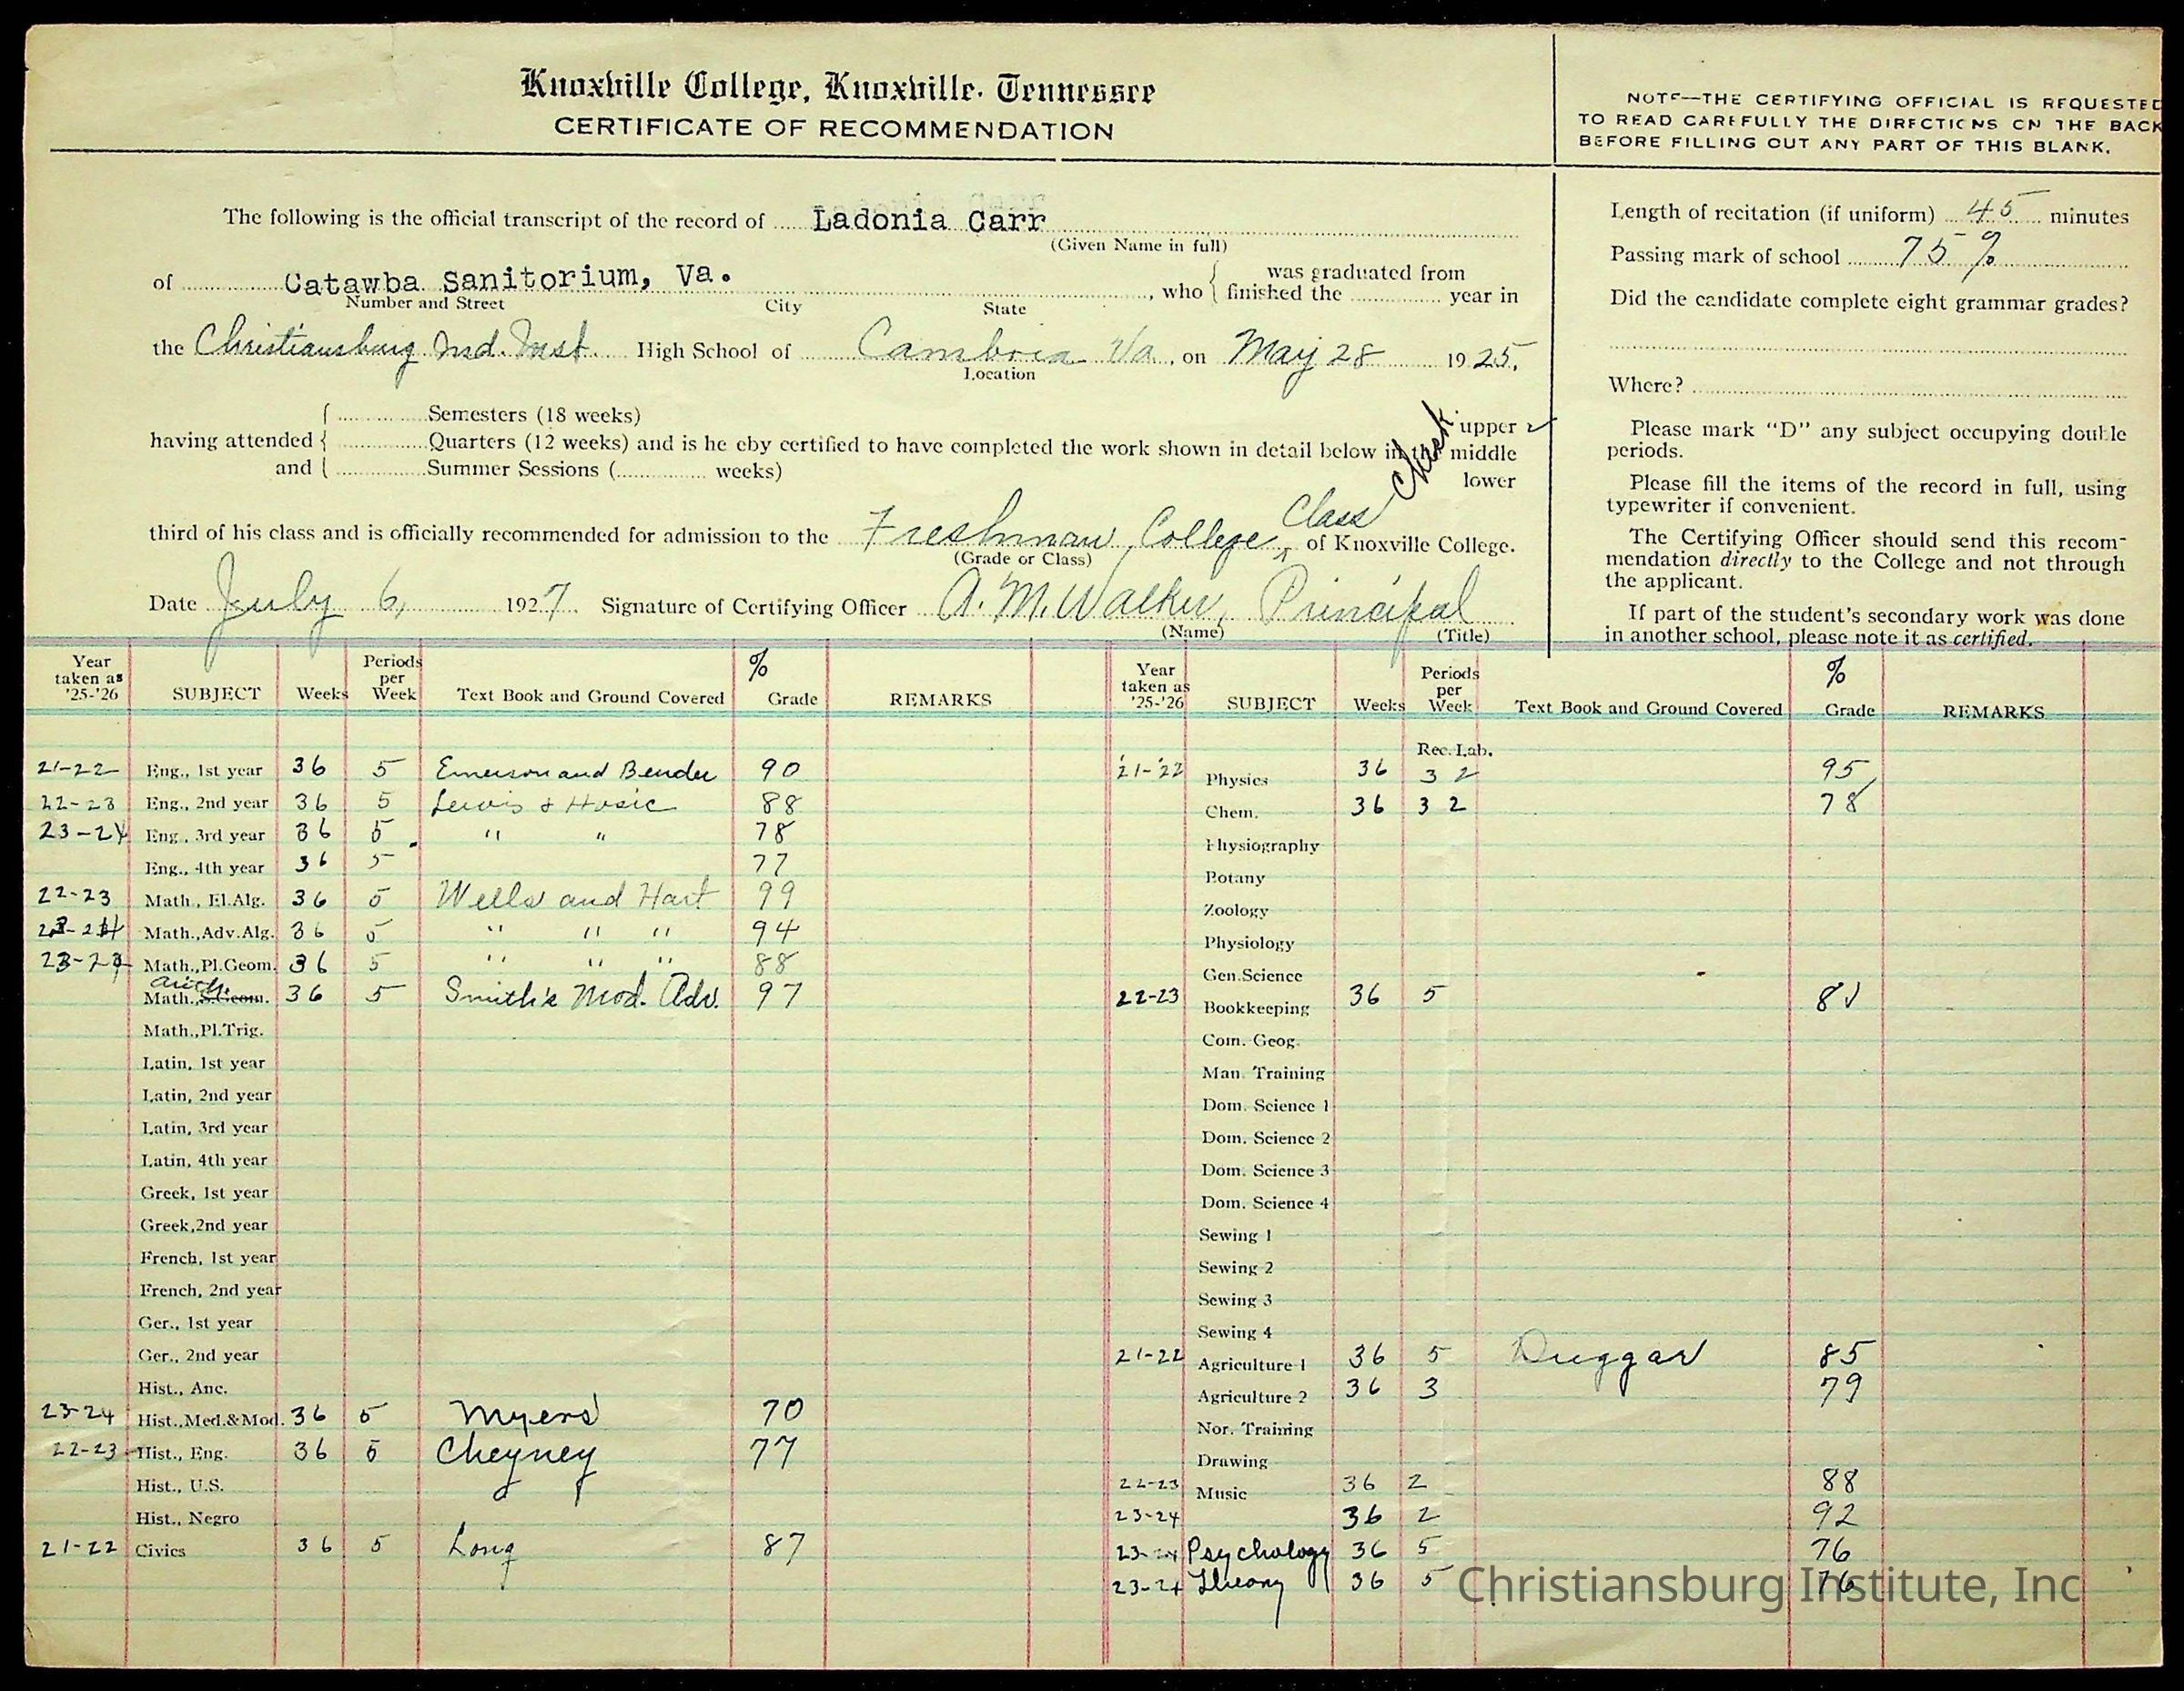 Knoxville College, Knoxville. Tennessee
CERTIFICATE OF RECOMMENDATION
NOTE—THE CERTIFYING OFFICIAL IS REQUESTED
TO READ CAREFULLY THE DIRECTIONS ON THE BACK
BEFORE FILLING OUT ANY PART OF THIS BLANK.
The following is the official transcript of the record of Ladonia Carr
(Given Name in full)
of Catawba Sanitorium, Va. , who { was graduated from
finished the year in
Number and Street City State
the Christiansburg Ind. Inst. High School of Cambria Va , on May 28 1925.
Location
having attended { Semesters (18 weeks)
Quarters (12 weeks) and is he eby certified to have completed the work shown in detail below in the upper
middle
lower
Check
and Summer Sessions ( weeks)
third of his class and is officially recommended for admission to the Freshman College Class of Knoxville College.
(Grade or Class)
Date July 6, 1927. Signature of Certifying Officer A. M. Walker, Principal
(Name) (Title)
Length of recitation (if uniform) 45 minutes
Passing mark of school 75%
Did the candidate complete eight grammar grades?
Where?
Please mark “D” any subject occupying double
periods.
Please fill the items of the record in full, using
typewriter if convenient.
The Certifying Officer should send this recom-
mendation directly to the College and not through
the applicant.
If part of the student’s secondary work was done
in another school, please note it as certified.
Year taken as '25-'26 SUBJECT Weeks Periods per Week Text Book and Ground Covered % Grade REMARKS
21-22 Eng., 1st year 36 5 Emerson and Bender 90
22-23 Eng., 2nd year 36 5 Lewis & Hosic 88
23-24 Eng., 3rd year 36 5 " " 78
Eng., 4th year 36 5 77
22-23 Math., El.Alg. 36 5 Wells and Hart 99
23-24 Math.,Adv.Alg. 36 5 " " " 94
23-24 Math.,Pl.Geom. 36 5 " " " 88
Math., S.Geom. Arith. 36 5 Smith's Mod. Adv. 97
Math.,Pl.Trig.
Latin, 1st year
Latin, 2nd year
Latin, 3rd year
Latin, 4th year
Greek, 1st year
Greek,2nd year
French, 1st year
French, 2nd year
Ger., 1st year
Ger., 2nd year
Hist., Anc.
23-24 Hist.,Med.&Mod. 36 5 Myers 70
22-23 Hist., Eng. 36 5 Cheyney 77
Hist., U.S.
Hist., Negro
21-22 Civics 36 5 Long 87
Year taken as '25-'26 SUBJECT Weeks Periods per Week Text Book and Ground Covered % Grade REMARKS
Rec. Lab.
'21-'22 Physics 36 3 2 95
Chem. 36 3 2 78
Physiography
Botany
Zoology
Physiology
Gen.Science
22-23 Bookkeeping 36 5
Com. Geog.
Man. Training
Dom. Science 1
Dom. Science 2
Dom. Science 3
Dom. Science 4
Sewing 1
Sewing 2
Sewing 3
Sewing 4
21-22 Agriculture 1 36 5 Duggar 85
Agriculture 2 36 3 79
Nor. Training
Drawing
22-23 Music 36 2 88
23-24 36 2 92
23-24 Psychology 36 5 76
23-24 Theory 36 5 76
Christiansburg Institute, Inc